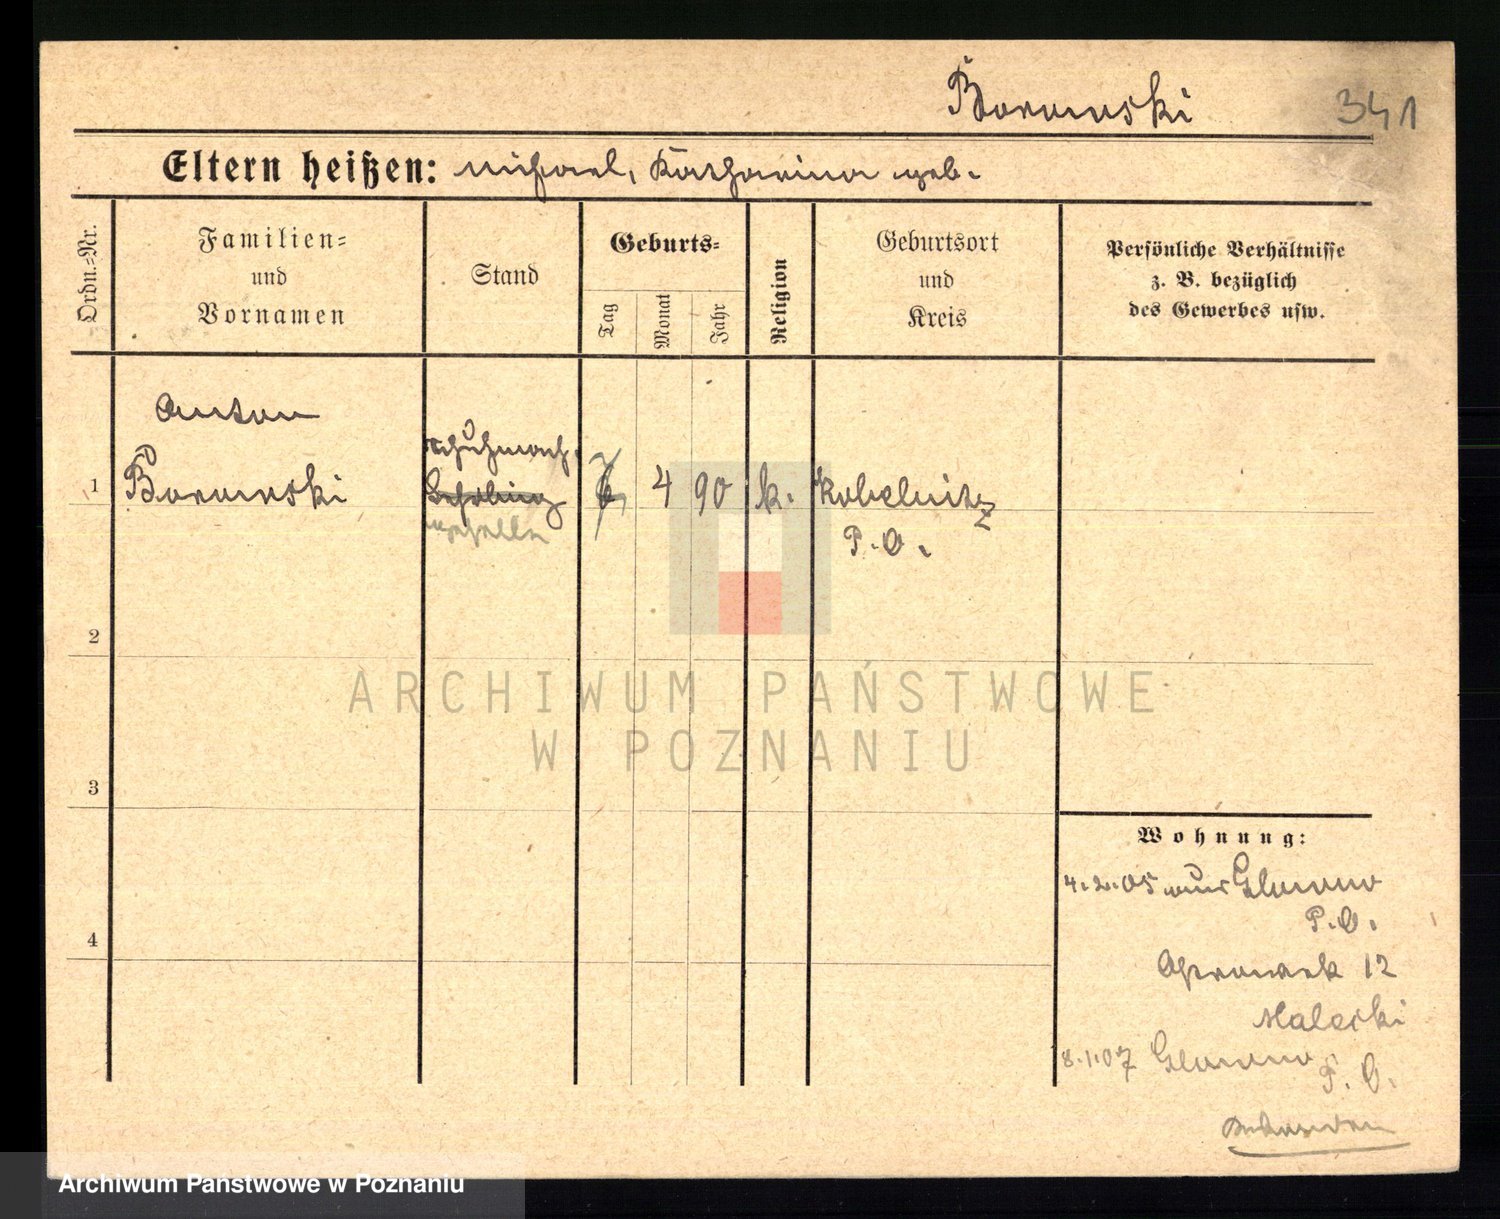 Borowski
341
Eltern heißen: Michael, Katharina geb.
Ordn.=Nr.
Familien=
und
Vornamen
Stand
Geburts=
Tag
Monat
Jahr
Religion
Geburtsort
und
Kreis
Persönliche Verhältnisse
z. B. bezüglich
des Gewerbes usw.
Anton
1 Borowski
Schuhmach.
Lehrling
geselle
4 90 k. Kobelnitz
P. O.
2
3
4
Wohnung:
4.2.05 aus Glowno
P. O.
12
Malecki
8.1.07 Glowno
P. O.
ARCHIWUM PAŃSTWOWE
W POZNANIU
Archiwum Państwowe w Poznaniu